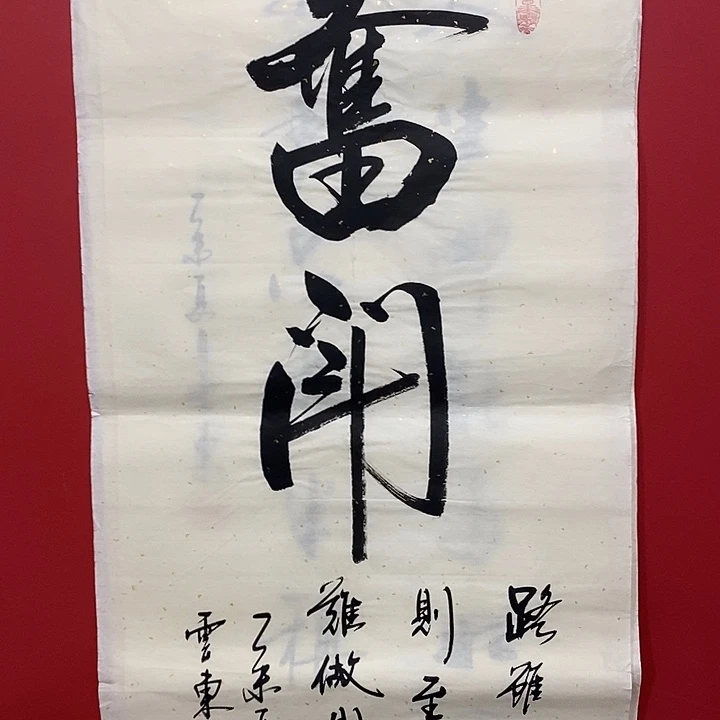 奮鬥
路雖
則至
難做
乙未
雲東